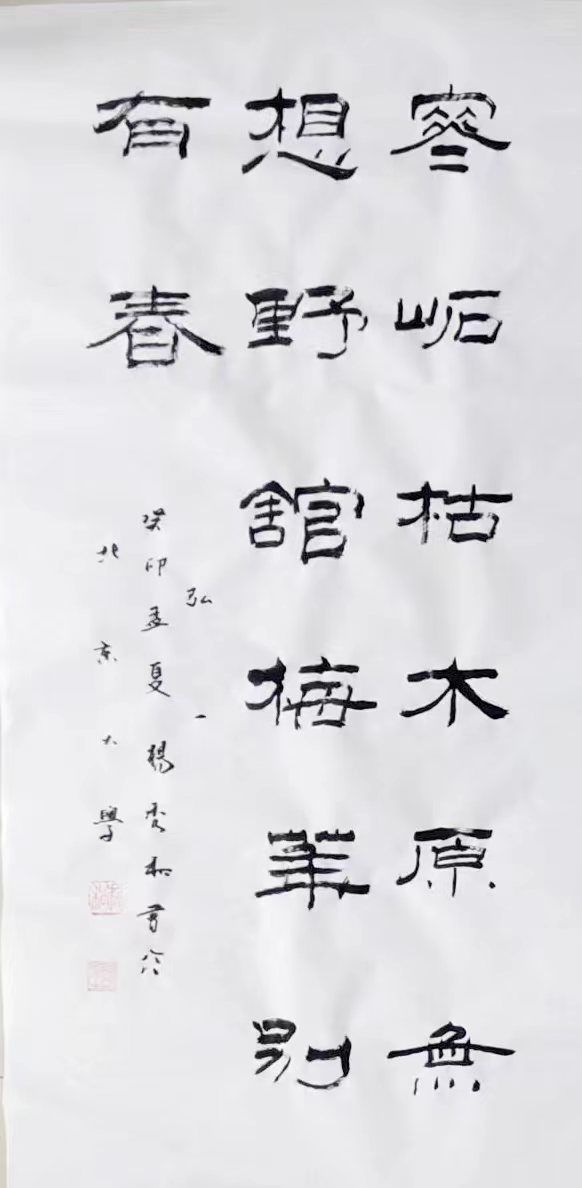 寒岩枯木原無
想野館梅華別
有春
弘一
癸卯孟夏楊秀和書於
北京大學